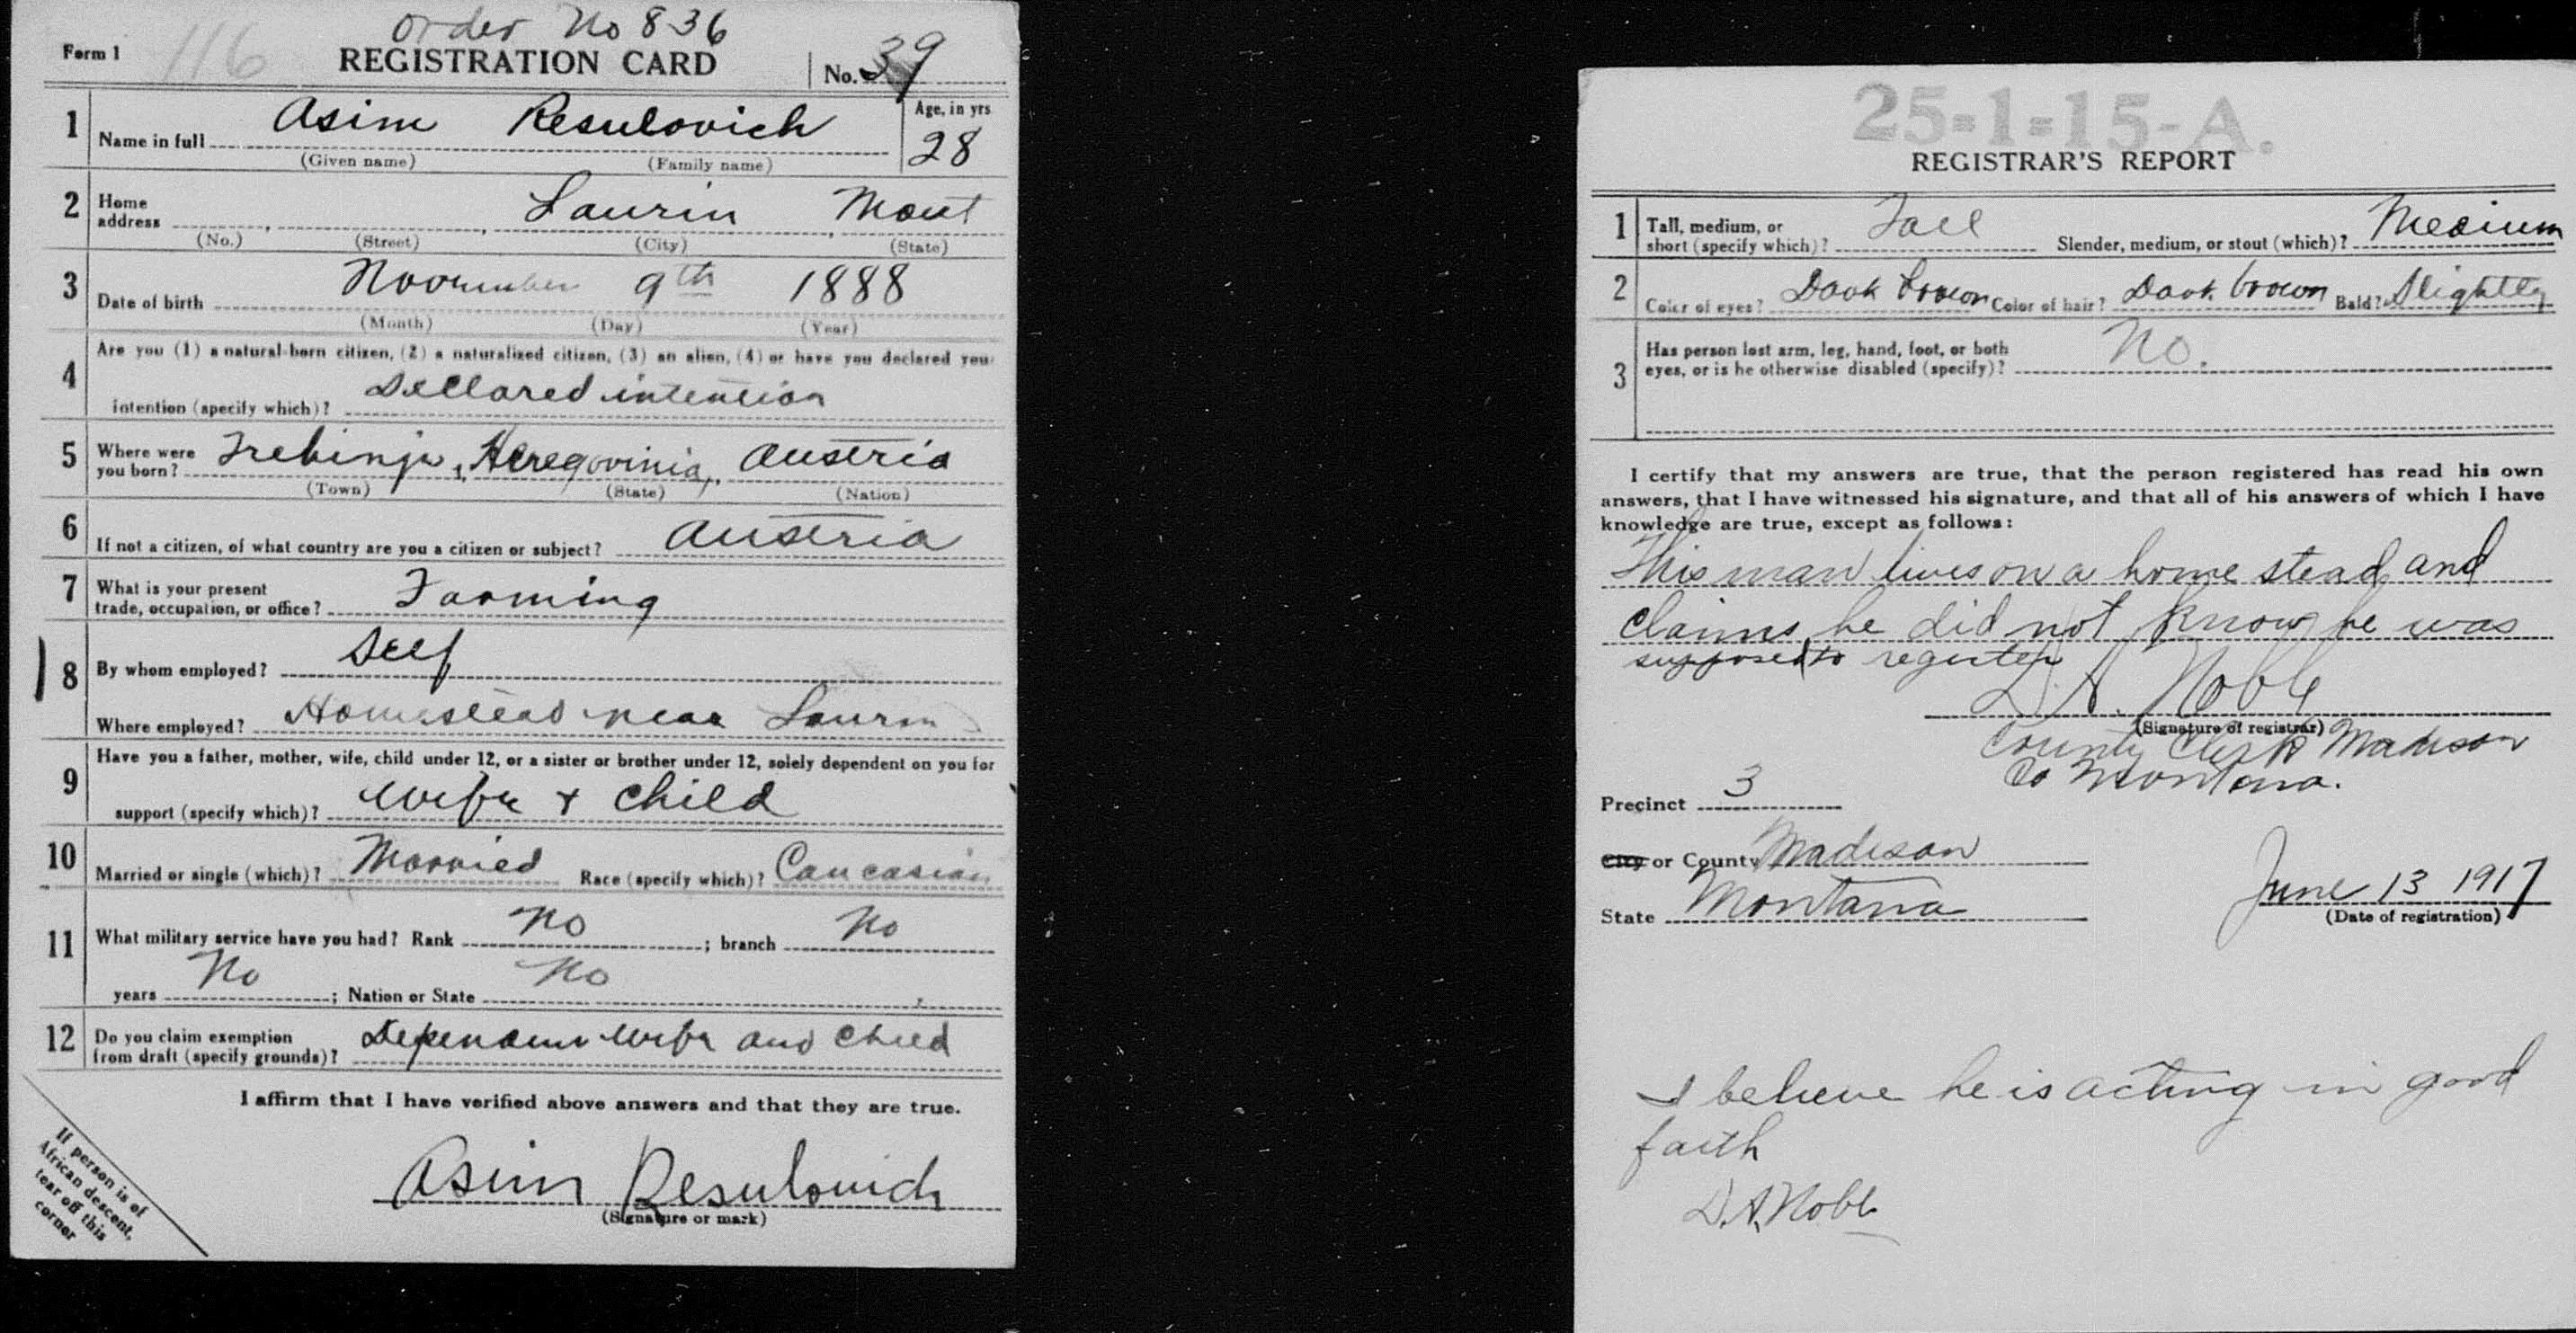 Order No 836
Form 1 116 REGISTRATION CARD No. 39
1 Name in full Asim Resulovich Age, in yrs 28
(Given name) (Family name)
2 Home address Laurin Mont
(No.) (Street) (City) (State)
3 Date of birth November 9th 1888
(Month) (Day) (Year)
4 Are you (1) a natural-born citizen, (2) a naturalized citizen, (3) an alien, (4) or have you declared your
intention (specify which)? Declared intention
5 Where were you born? Trebinje, Heregovinia, Austria
(Town) (State) (Nation)
6 If not a citizen, of what country are you a citizen or subject? Austria
7 What is your present trade, occupation, or office? Farming
8 By whom employed? Self
Where employed? Homestead near Laurin
9 Have you a father, mother, wife, child under 12, or a sister or brother under 12, solely dependent on you for
support (specify which)? Wife + child
10 Married or single (which)? Married Race (specify which)? Caucasian
11 What military service have you had? Rank No ; branch No
years No ; Nation or State No
12 Do you claim exemption from draft (specify grounds)? Dependent Wife and Child
I affirm that I have verified above answers and that they are true.
Asim Resulovich
(Signature or mark)
If person is of
African descent,
tear off this
corner
25-1-15-A.
REGISTRAR'S REPORT
1 Tall, medium, or short (specify which)? Tall Slender, medium, or stout (which)? Medium
2 Color of eyes? Dark brown Color of hair? Dark brown Bald? Slightly
3 Has person lost arm, leg, hand, foot, or both
eyes, or is he otherwise disabled (specify)? No.
I certify that my answers are true, that the person registered has read his own
answers, that I have witnessed his signature, and that all of his answers of which I have
knowledge are true, except as follows:
This man lives on a home stead and
claims he did not know he was
supposed to register
D. A. Noble
(Signature of registrar)
County Clerk Madison
Co Montana.
Precinct 3
City or County Madison
State Montana
June 13 1917
(Date of registration)
I believe he is acting in good
faith
D. A. Noble